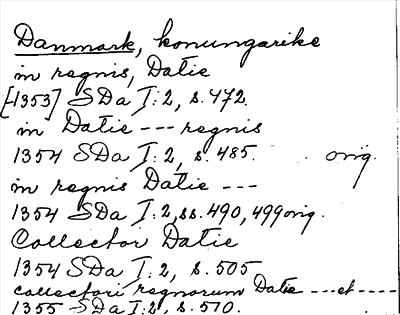 Danmark, konungarike
in regnis, Datie
[1353] SDa I:2, s. 472.
in Datie --- regnis
1354 SDa I:2, s. 485. orig.
in regnis Datie ---
1354 SDa I:2, ss. 490, 499 orig.
Collector Datie
1354 SDa I:2, s. 505
collectori regnorum Datie --- et ----
1355 SDa I:2, s. 510.